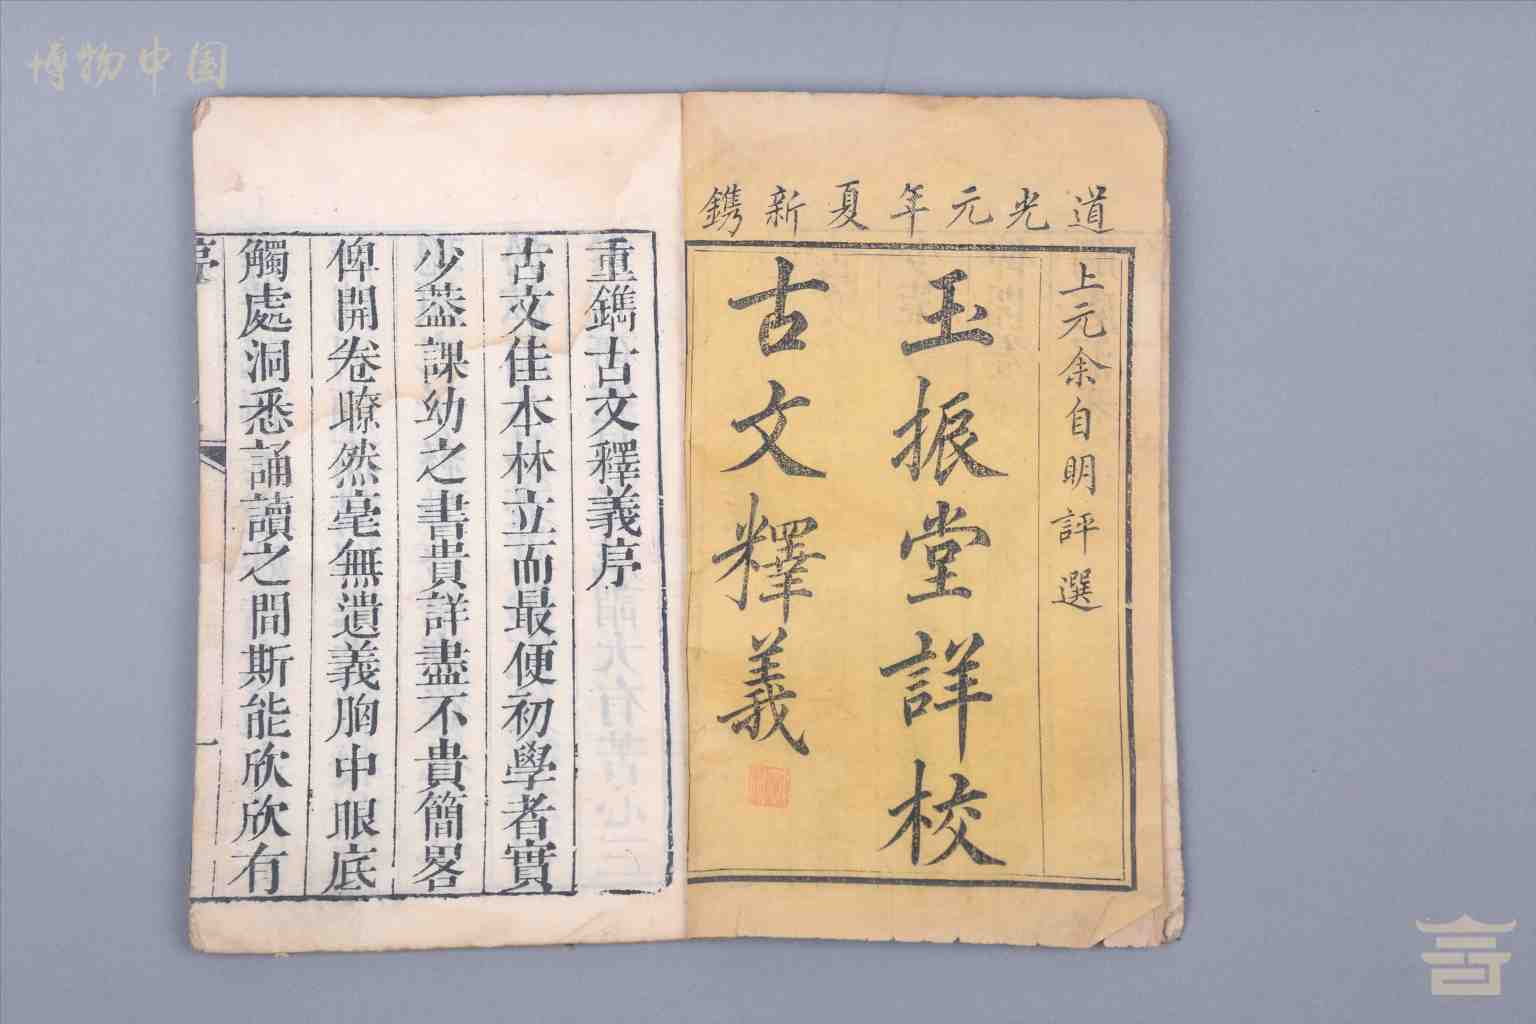 博物中国
道光元年夏新鐫
上元余自明評選
玉振堂詳校
古文釋義
重鐫古文釋義序
古文佳本林立而最便初學者實
少葢課幼之書貴詳盡不貴簡畧
俾開卷暸然毫無遺義胸中眼底
觸處洞悉誦讀之間斯能欣欣有
序
一